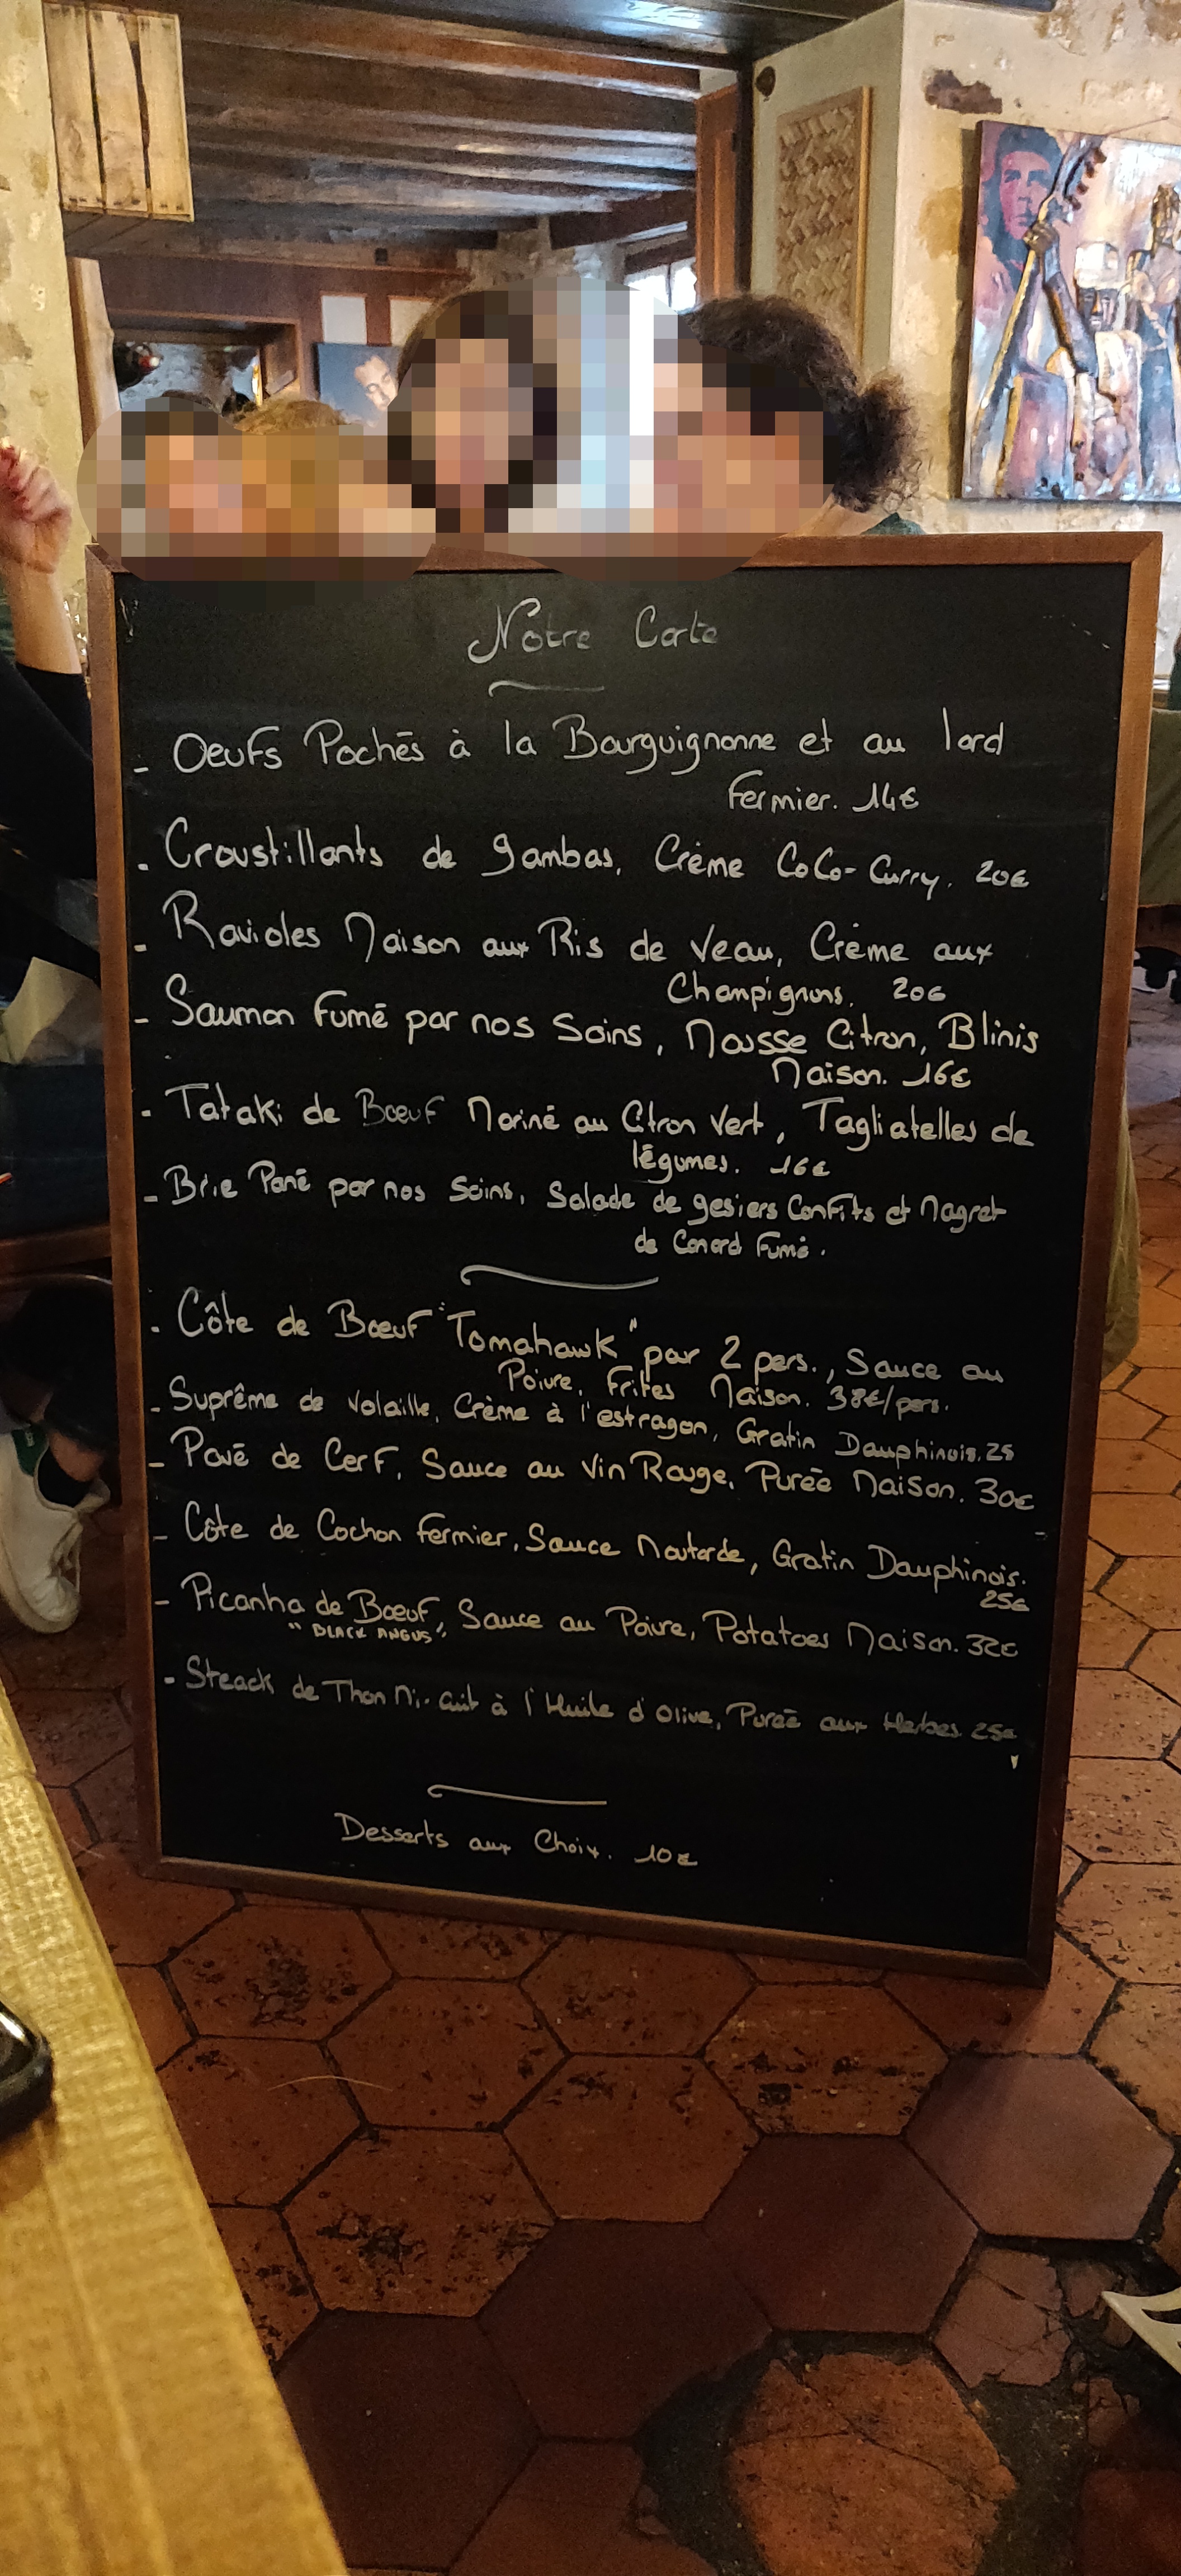 Notre Carte
- Oeufs Pochés à la Bourguignonne et au lard
Fermier. 14€
- Croustillants de gambas, Crème CoCo-Curry. 20€
- Ravioles Maison aux Ris de Veau, Crème aux
Champignons. 20€
- Saumon Fumé par nos Soins, Mousse Citron, Blinis
Maison. 16€
- Tataki de Bœuf Mariné au Citron Vert, Tagliatelles de
légumes. 16€
- Brie Pané par nos Soins, Salade de gesiers Confits et Magret
de Canard Fumé.
- Côte de Bœuf "Tomahawk" par 2 pers., Sauce au
Poivre, Frites Maison. 38€/pers.
- Suprême de Volaille, Crème à l'estragon, Gratin Dauphinois. 25
- Pavé de Cerf, Sauce au Vin Rouge, Purée Maison. 30€
- Côte de Cochon Fermier, Sauce Moutarde, Gratin Dauphinois.
25€
- Picanha de Bœuf, Sauce au Poivre, Potatoes Maison. 32€
"BLACK ANGUS"
- Steack de Thon Mi-Cuit à l'Huile d'Olive, Purée aux Herbes 25€
Desserts aux Choix. 10€